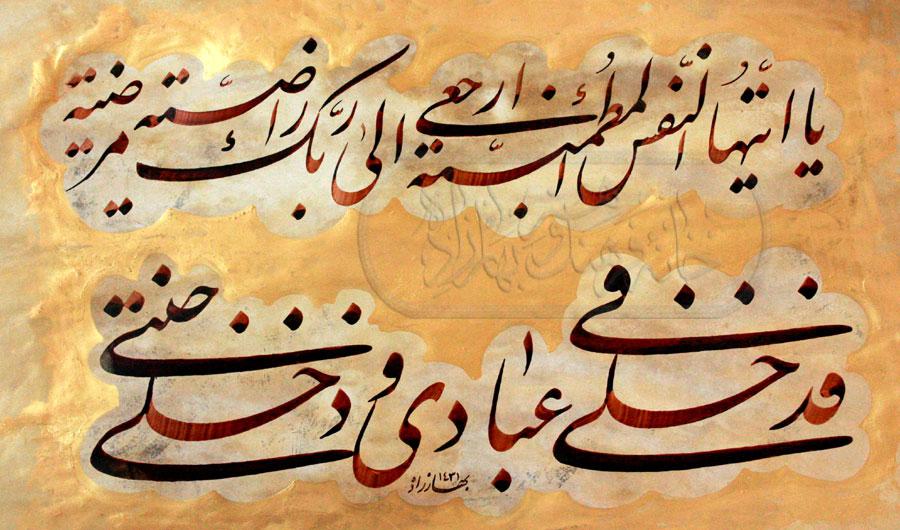 يا ايتها النفس المطمئنة ارجعى الى ربك راضية مرضية
فدخلى فى عبادى ودخلى جنتى
۱۴۳۱